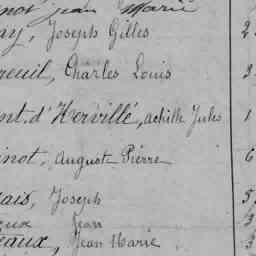 not, Jean Marie
ay, Joseph Gilles 2
reuil, Charles Louis 3
nt. d'Hervillé, Achille Jules 1
inot, Auguste Pierre 6
ais, Joseph 5
eux Jean 3
eaux, Jean Marie 3